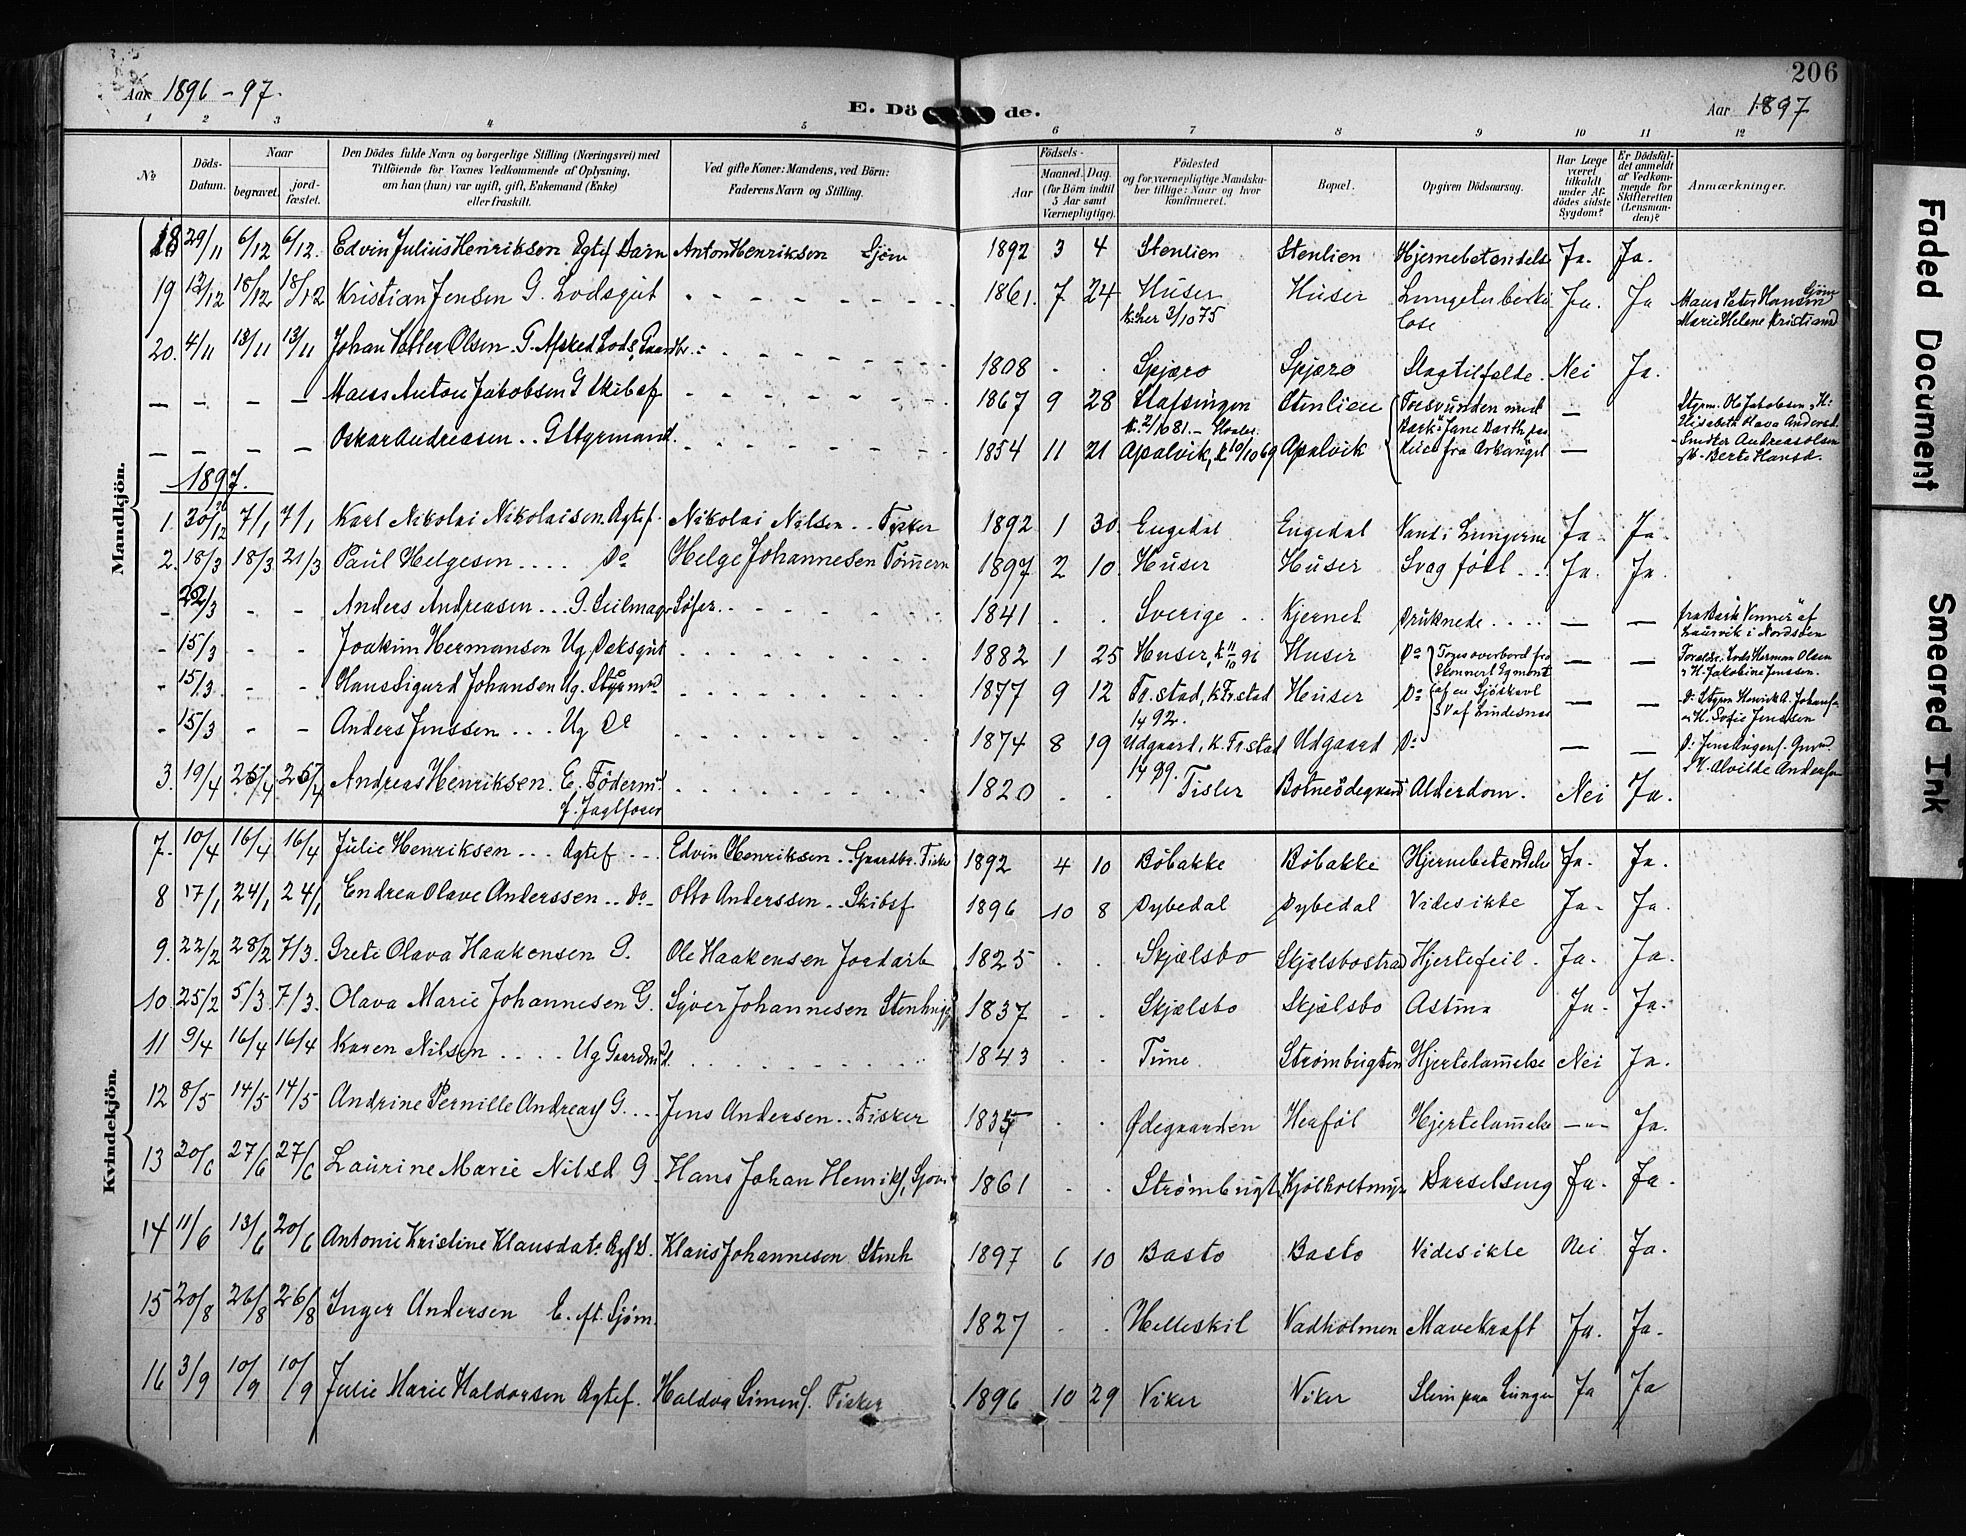 206
Aar 1896-97.
E. Dö de.
Aar 1897
1 2 3 4 5 6 7 8 9 10 11 12
No
Döds-Datum.
Naar
begravet.
jord-fæstet.
Den Dödes fulde Navn og borgerlige Stilling (Næringsvei) med
Tilföiende for Voxnes Vedkommende af Oplysning,
om han (hun) var ugift, gift, Enkemand (Enke)
eller fraskilt.
Ved gifte Koner: Mandens, ved Börn:
Faderens Navn og Stilling.
Födsels-
Aar
Maaned. Dag.
(for Börn indtil
5 Aar samt
Værnepligtige).
Födested
og for værnepligtige Mandska-
ber tillige: Naar og hvor
konfirmeret.
Bopæl.
Opgiven Dödsaarsag.
Har Læge
været
tilkaldt
under Af-
dödes sidste
Sygdom?
Er Dödsfal-
det anmeldt
af Vedkom-
mende for
Skifteretten
(Lensman-
den)?
Anmærkninger.
Mandkjön.
18 29/11 6/12 6/12. Edvin Julius Henriksen Ægtef Barn Anton Henriksen Sjøm 1892 3 4 Stenlien Stenlien Hjernebetendelse Ja. Ja.
19 12/12 18/12 18/12 Kristian Jensen G. Lodsgut 1861. 7 24 Huser Huser Lungetuberku Ja. Ja
k: her 3/10 75 lose
20. 4/11 13/11 13/11 Johan Olsen. G. Afsked Lods, Gaardbr. 1808 Spjærø Spjærø Slagtilfelde. Nei Ja.
Hans Anton Jakobsen G Skibsf 1867 9 28 Stafsingen Stenlien Forsvunden med
Bark "Jane
Oskar Andreasen G Styrmand. 1854 11 21 Apalvik, Apalvik fra Arkangel
1897.
1. 30/12 7/1 7/1 Karl Nikolai Nikolaisen Ægtef. Nikolai Nilsen Fisker 1892 1 30 Engedal Engedal Vand i Lungerne Ja. Ja.
2. 18/3 18/3 21/3 Paul Helgesen Do Helge Johannesen Tømmerm 1897 2 10. Huser Huser Svag født Ja. Ja.
22/3 Anders Andreasen G. Seilmag. 1841 Sverige Kjernet Druknede
15/3 Joakim Hermansen Ug Deksgut 1882 1 25 Huser, k 11/10 96 Huser Do
15/3. Hans Sigurd Johansen Ug. Styrmd 1877 9 12 Fr.stad, k. Fr.stad Huser Do
1492.
15/3 Anders Jenssen Ug Do 1874 8 19 Udgaard, k. Fr.stad Udgaard Do
3. 19/4 25/4 25/4 Andreas Henriksen. E. Föderm. 1820 Tisler Botneödegaard Alderdom. Nei Ja.
Kvindekjön.
7. 10/4 16/4 16/4 Julie Henriksen Ægtef Edvin Henriksen Gaardbr. Fisker 1892 4 10 Bøbakke Bøbakke Hjernebetendelse Ja. Ja.
8 17/1 24/1 24/1 Endrea Olave Anderssen Do Otto Anderssen Skibsf 1896 10 8 Dybedal Dybedal Videsikte Ja. Ja.
9. 22/2 28/2 7/3. Grete Olava Haakensen G. Ole Haakensen Jordarb 1825 Skjælsbo Skjælsbostrand Hjertefeil. Ja. Ja.
10. 25/2 5/3. 7/3. Olava Marie Johannesen G. Syver Johannesen Stenhug 1837 Skjælsbo Skjælsbo Astma Ja. Ja.
11 9/4 16/4 16/4 Karen Nilsen Ug Gaardm 1843 Tune Strømbugten Hjertelammelse Nei Ja.
12 8/5 14/5 14/5 Andrine Pernille Andreas G. Jens Andersen Fisker 1835 Ødegaarden Henföl Hjertelammelse Ja.
13 20/6 27/6 27/6 Laurine Marie Nilsd G. Hans Johan Henriks, Sjøm 1861 Strømbugt Kjølholtmyr Barselseng Ja. Ja.
14 11/6 13/6 20/6 Antonie Kristine Klausdat. Ægtf B. Klaus Johannesen Stenh 1897 6 10 Basto Basto Videsikte Nei Ja.
15 20/8 26/8 26/8 Inger Andersen E. eft. Sjøm. 1827 Helleskil Vadholmen Mavekræft Ja. Ja.
16 3/9 10/9 10/9 Julie Marie Haldorsen Ægtef. Haldor Simens. Fisker 1896 10 29 Viker Viker Slim paa Lunger Ja Ja
Faded Document
Smeared Ink